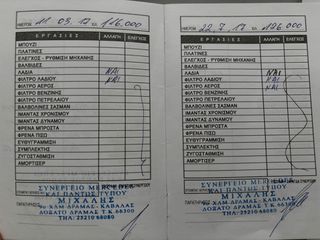 11 03. 17 116.000
ΕΡΓΑΣΙΕΣ ΑΛΛΑΓΗ ΕΛΕΓΧΟΣ
ΜΠΟΥΖΙ
ΠΛΑΤΙΝΕΣ
ΕΛΕΓΧΟΣ - ΡΥΘΜΙΣΗ ΜΗΧΑΝΗΣ
ΒΑΛΒΙΔΕΣ
ΛΑΔΙΑ ΝΑΙ
ΦΙΛΤΡΟ ΛΑΔΙΟΥ ΝΑΙ
ΦΙΛΤΡΟ ΑΕΡΟΣ ΝΑΙ
ΦΙΛΤΡΟ ΒΕΝΖΙΝΗΣ
ΦΙΛΤΡΟ ΠΕΤΡΕΛΑΙΟΥ
ΒΑΛΒΟΛΙΝΕΣ ΣΑΣΜΑΝ
ΙΜΑΝΤΑΣ ΧΡΟΝΙΣΜΟΥ
ΙΜΑΝΤΑΣ ΔΥΝΑΜΟΥ
ΦΡΕΝΑ ΜΠΡΟΣΤΑ
ΦΡΕΝΑ ΠΙΣΩ
ΕΥΘΥΓΡΑΜΜΙΣΗ
ΣΥΜΠΛΕΚΤΗΣ
ΖΥΓΟΣΤΑΘΜΙΣΗ
ΑΜΟΡΤΙΣΕΡ
ΣΥΝΕΡΓΕΙΟ MERCEDES
ΚΑΙ ΠΑΝΤΟΣ ΤΥΠΟΥ
ΜΙΧΑΛΗΣ
4ο ΧΛΜ ΔΡΑΜΑΣ - ΚΑΒΑΛΑΣ
ΔΟΞΑΤΟ ΔΡΑΜΑΣ Τ.Κ. 66300
ΤΗΛ: 25210 68080
22.7.17 126.000
ΕΡΓΑΣΙΕΣ ΑΛΛΑΓΗ ΕΛΕΓΧΟΣ
ΜΠΟΥΖΙ
ΠΛΑΤΙΝΕΣ
ΕΛΕΓΧΟΣ - ΡΥΘΜΙΣΗ ΜΗΧΑΝΗΣ
ΒΑΛΒΙΔΕΣ
ΛΑΔΙΑ ΝΑΙ
ΦΙΛΤΡΟ ΛΑΔΙΟΥ ΝΑΙ
ΦΙΛΤΡΟ ΑΕΡΟΣ ΝΑΙ
ΦΙΛΤΡΟ ΒΕΝΖΙΝΗΣ
ΦΙΛΤΡΟ ΠΕΤΡΕΛΑΙΟΥ
ΒΑΛΒΟΛΙΝΕΣ ΣΑΣΜΑΝ
ΙΜΑΝΤΑΣ ΧΡΟΝΙΣΜΟΥ
ΙΜΑΝΤΑΣ ΔΥΝΑΜΟΥ
ΦΡΕΝΑ ΜΠΡΟΣΤΑ
ΦΡΕΝΑ ΠΙΣΩ
ΕΥΘΥΓΡΑΜΜΙΣΗ
ΣΥΜΠΛΕΚΤΗΣ
ΖΥΓΟΣΤΑΘΜΙΣΗ
ΑΜΟΡΤΙΣΕΡ
ΣΥΝΕΡΓΕΙΟ
ΚΑΙ ΠΑΝΤΟΣ ΤΥΠΟΥ
ΜΙΧΑΛΗΣ
ΧΛΜ ΔΡΑΜΑΣ - ΚΑΒΑΛΑΣ
ΔΟΞΑΤΟ ΔΡΑΜΑΣ Τ.Κ. 66300
ΤΗΛ: 25210 68080